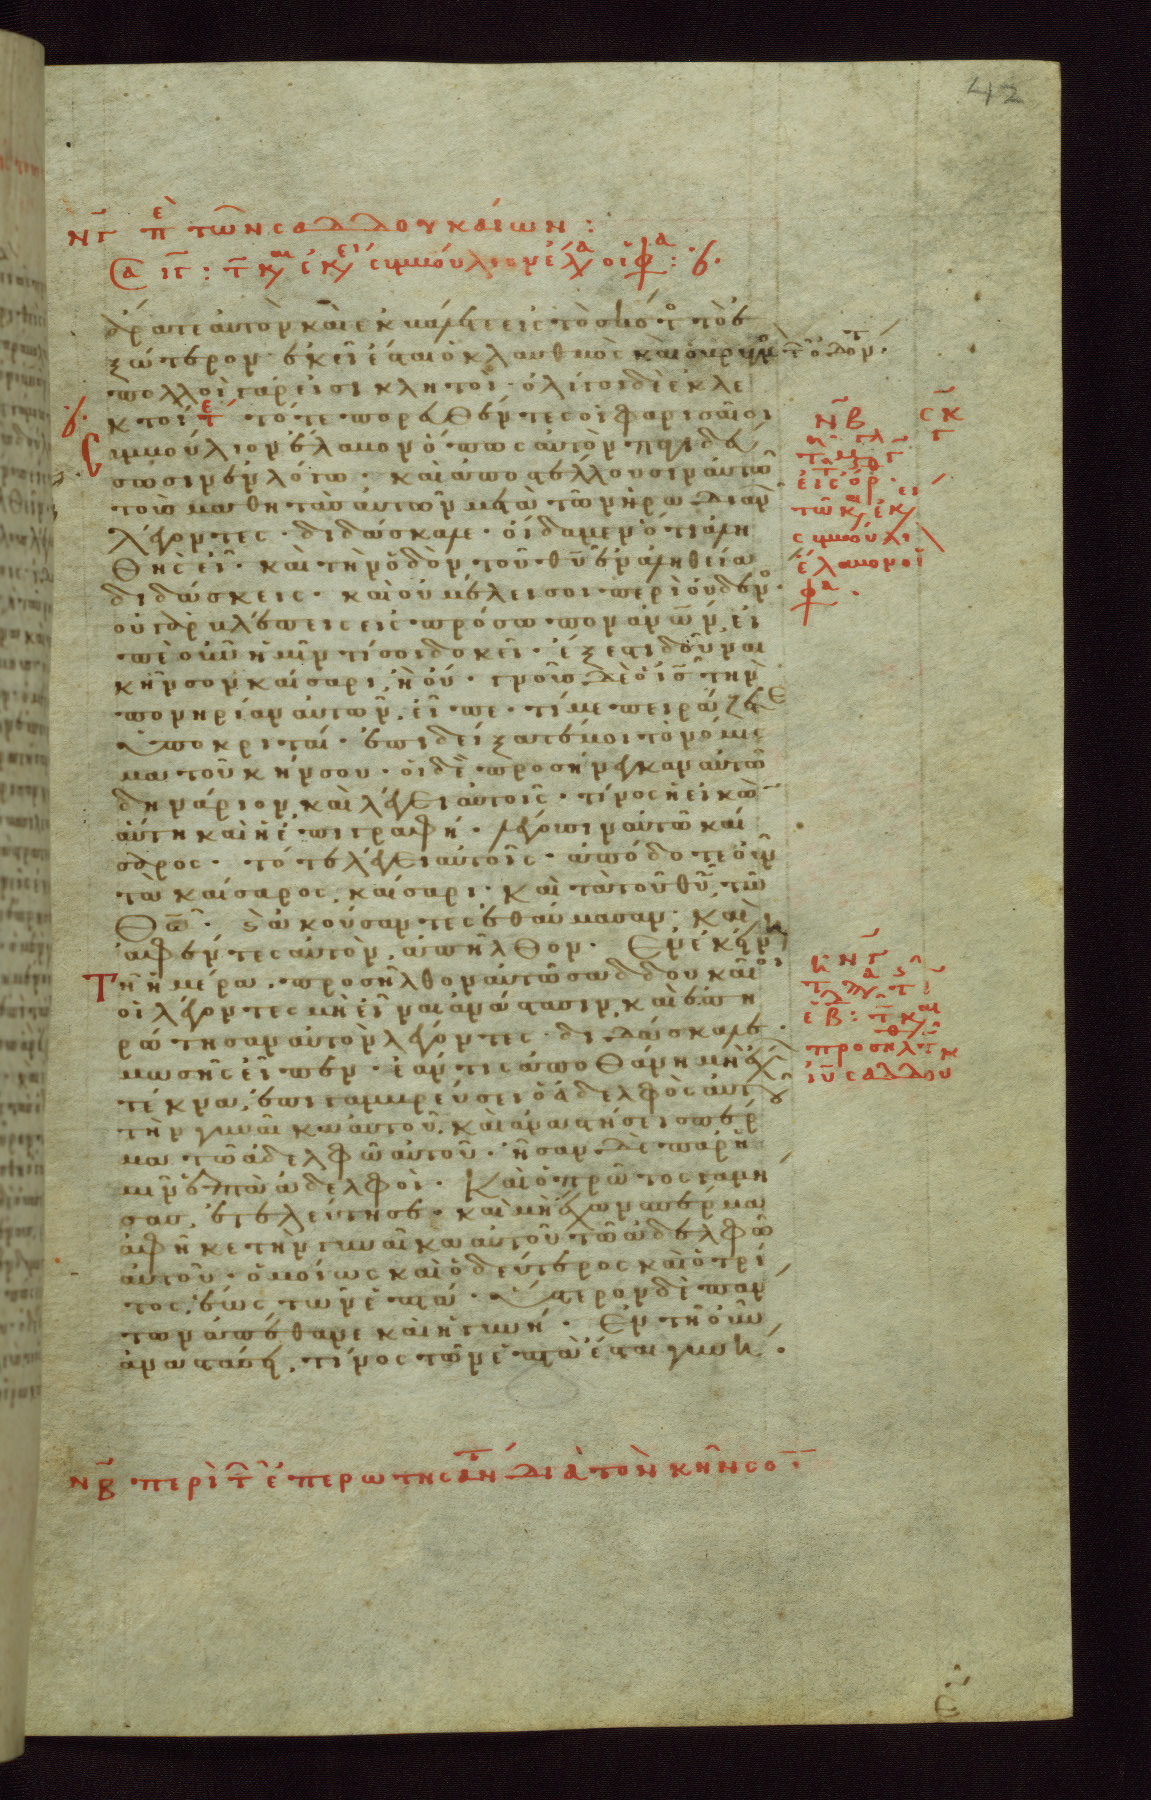 42
νγ πε τῶν σαδδουκαίων:
ἄρατε αὐτὸν καὶ ἐκβάλετε εἰς τὸ σκότος τὸ ἐ
ξώτερον· ἐκεῖ ἔσται ὁ κλαυθμὸς καὶ ὁ βρυγμὸς τῶν ὀδόντων·
πολλοὶ γάρ εἰσι κλητοὶ· ὀλίγοι δὲ ἐκλε
κτοί τότε πορευθέντες οἱ φαρισαῖοι
συμβούλιον ἔλαβον ὅπως αὐτὸν παγιδεύ
σωσιν ἐν λόγω· καὶ ἀποστέλλουσιν αὐτῶ
τοὺς μαθητὰς αὐτῶν μετὰ τῶν ἡρωδιανῶν
λέγοντες· διδάσκαλε· οἴδαμεν ὅτι ἀλη
θὴς εἶ· καὶ τὴν ὁδὸν τοῦ θῦ ἐν ἀληθεία
διδάσκεις· καὶ οὐ μέλει σοι περὶ οὐδενός·
οὐ γὰρ βλέπεις εἰς πρόσωπον ἀνῶν, εἰ
πὲ οὖν ἡμῖν τί σοι δοκεῖ· ἔξεστι δοῦναι
κῆνσον καίσαρι, ἢ οὔ· γνοὺς δὲ ὁ ις τὴν
πονηρίαν αὐτῶν, εἶπε· τί με πειράζετε
ὑποκριταί· ἐπιδείξατέ μοι τὸ νόμισ
μα τοῦ κήνσου· οἱ δὲ προσήνεγκαν αὐτῶ
δηνάριον καὶ λέγει αὐτοῖς· τίνος ἡ εἰκὼν
αὕτη καὶ ἡ ἐπιγραφή· λέγουσιν αὐτῶ καί
σαρος· τότε λέγει αὐτοῖς· ἀπόδοτε οὖν
τὰ καίσαρος, καίσαρι· καὶ τὰ τοῦ θῦ, τῶ
θῶ· καὶ ἀκούσαντες ἐθαύμασαν· καὶ
ἀφέντες αὐτὸν, ἀπῆλθον· Ἐν ἐκείνη
τῆ ἡμέρα, προσῆλθον αὐτῶ σαδδουκαῖοι
οἱ λέγοντες μὴ εἶναι ἀνάστασιν, καὶ ἐπη
ρώτησαν αὐτὸν λέγοντες· διδάσκαλε·
μωσῆς εἶπεν· ἐάν τις ἀποθάνη μὴ ἔχων
τέκνα, ἐπιγαμβρεύσει ὁ ἀδελφὸς αὐτοῦ
τὴν γυναῖκα αὐτοῦ, καὶ ἀναστήσει σπέρ
μα τῶ ἀδελφῶ αὐτοῦ· ἦσαν δὲ παρ' ἡ
μῖν ἑπτὰ ἀδελφοὶ· Καὶ ὁ πρῶτος γαμή
σας, ἐτελεύτησε· καὶ μὴ ἔχων σπέρμα
ἀφῆκε τὴν γυναῖκα αὐτοῦ τῶ ἀδελφῶ
αὐτοῦ· ὁμοίως καὶ ὁ δεύτερος καὶ ὁ τρί
τος, ἕως τῶν ἑπτά· Ὕστερον δὲ πάν
των ἀπέθανε καὶ ἡ γυνή· Ἐν τῆ οὖν
ἀναστάσει, τίνος τῶν ἑπτὰ ἔσται γυνή·
νβ περὶ τῶν ἐπερωτησάντων διὰ τὸν κῆνσον